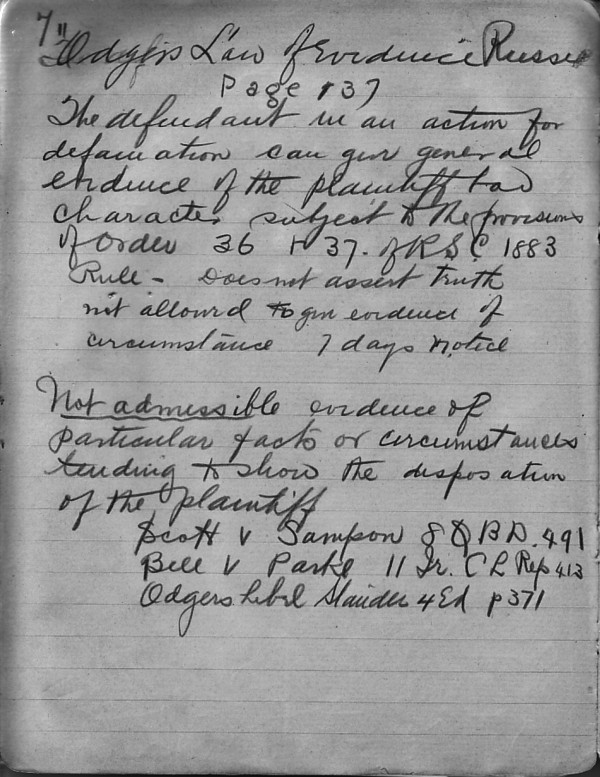 7"
Odgers Law of Evidence Russe
Page 137
The defendant in an action for
defamation can give general
evidence of the plaintiff bad
character subject to the provisions
of Order 36 r 37. of RSC 1883
Rule - Does not assert truth
not allowed to give evidence of
circumstance 7 days notice
Not admissible evidence of
particular facts or circumstances
tending to show the disposation
of the plaintiff
Scott v Sampson 8 QBD. 491
Bell v Parke 11 Ir. C L Rep 413
Odgers Libel Slander 4 Ed p 371